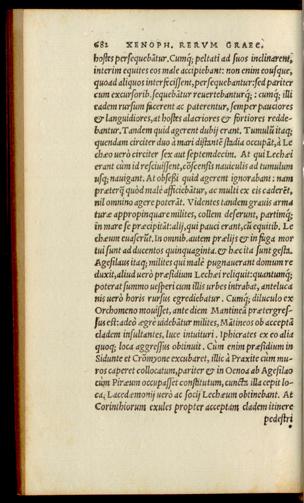 682 XENOPH. RERVM GRAEC.
hostes persequebãtur. Cumq; peltati ad suos inclinarent,
interim equites eos male accipiebant: non enim eousque,
quoad aliquos interfecissent, persequebantur: sed pariter
cum excursorib. sequebãtur reuertebanturq;: cumq; illi
eadem rursum facerent ac paterentur, semper pauciores
& languidiores, at hostes alacriores & fortiores reddebantur.
Tandem quid agerent dubij erant. Tumulũ itaq;
quendam circiter duo à mari distantẽ stadia occupãt, à Lechæo
verò circiter sex aut septemdecim. At qui Lechæi
erant cùm id resciuissent, cõscensis nauiculis ad tumulum
usq; nauigant. At obsessi quid agerent ignorabant: nam
præterq̃ quòd male afficiebãtur, ac multi ex eis caderẽt,
nil omnino agere poterãt. Videntes tandem grauis armaturæ
appropinquare milites, collem deserunt, partimq;
in mare se præcipitãt: alij, qui pauci erant, cũ equitib. Lechæum
euaserũt. In omnib. autem prælijs & in fuga mortui
sunt ad ducentos quinquaginta. & hæc ita sunt gesta.
Agesilaus itaq; milites qui malè pugnauerant domum reduxit,
aliud uerò præsidium Lechæi reliquit: quantumq;
poterat summo uesperi cum illis urbes intrabat, antelucanis
uerò horis rursus egrediebatur. Cumq; diluculo ex
Orchomeno mouisset, ante diem Mantineã prætergressus
est: adeò ægrè uidebãtur milites, Mãtineos ob acceptã
cladem insultantes, luce intuituri. Iphicrates ex eo alia
quoq; loca aggressus obtinuit. Cùm enim præsidium in
Sidunte et Crõmyone excubaret, illic à Praxite cùm muros
caperet collocatum, pariter & in Oenoa ab Agesilao
cùm Piræum occupasset constitutum, cuncta illa cepit loca,
Lacedæmonij uerò ac socij Lechæum obtinebant. At
Corinthiorum exules propter acceptam cladem itinere
pedestri